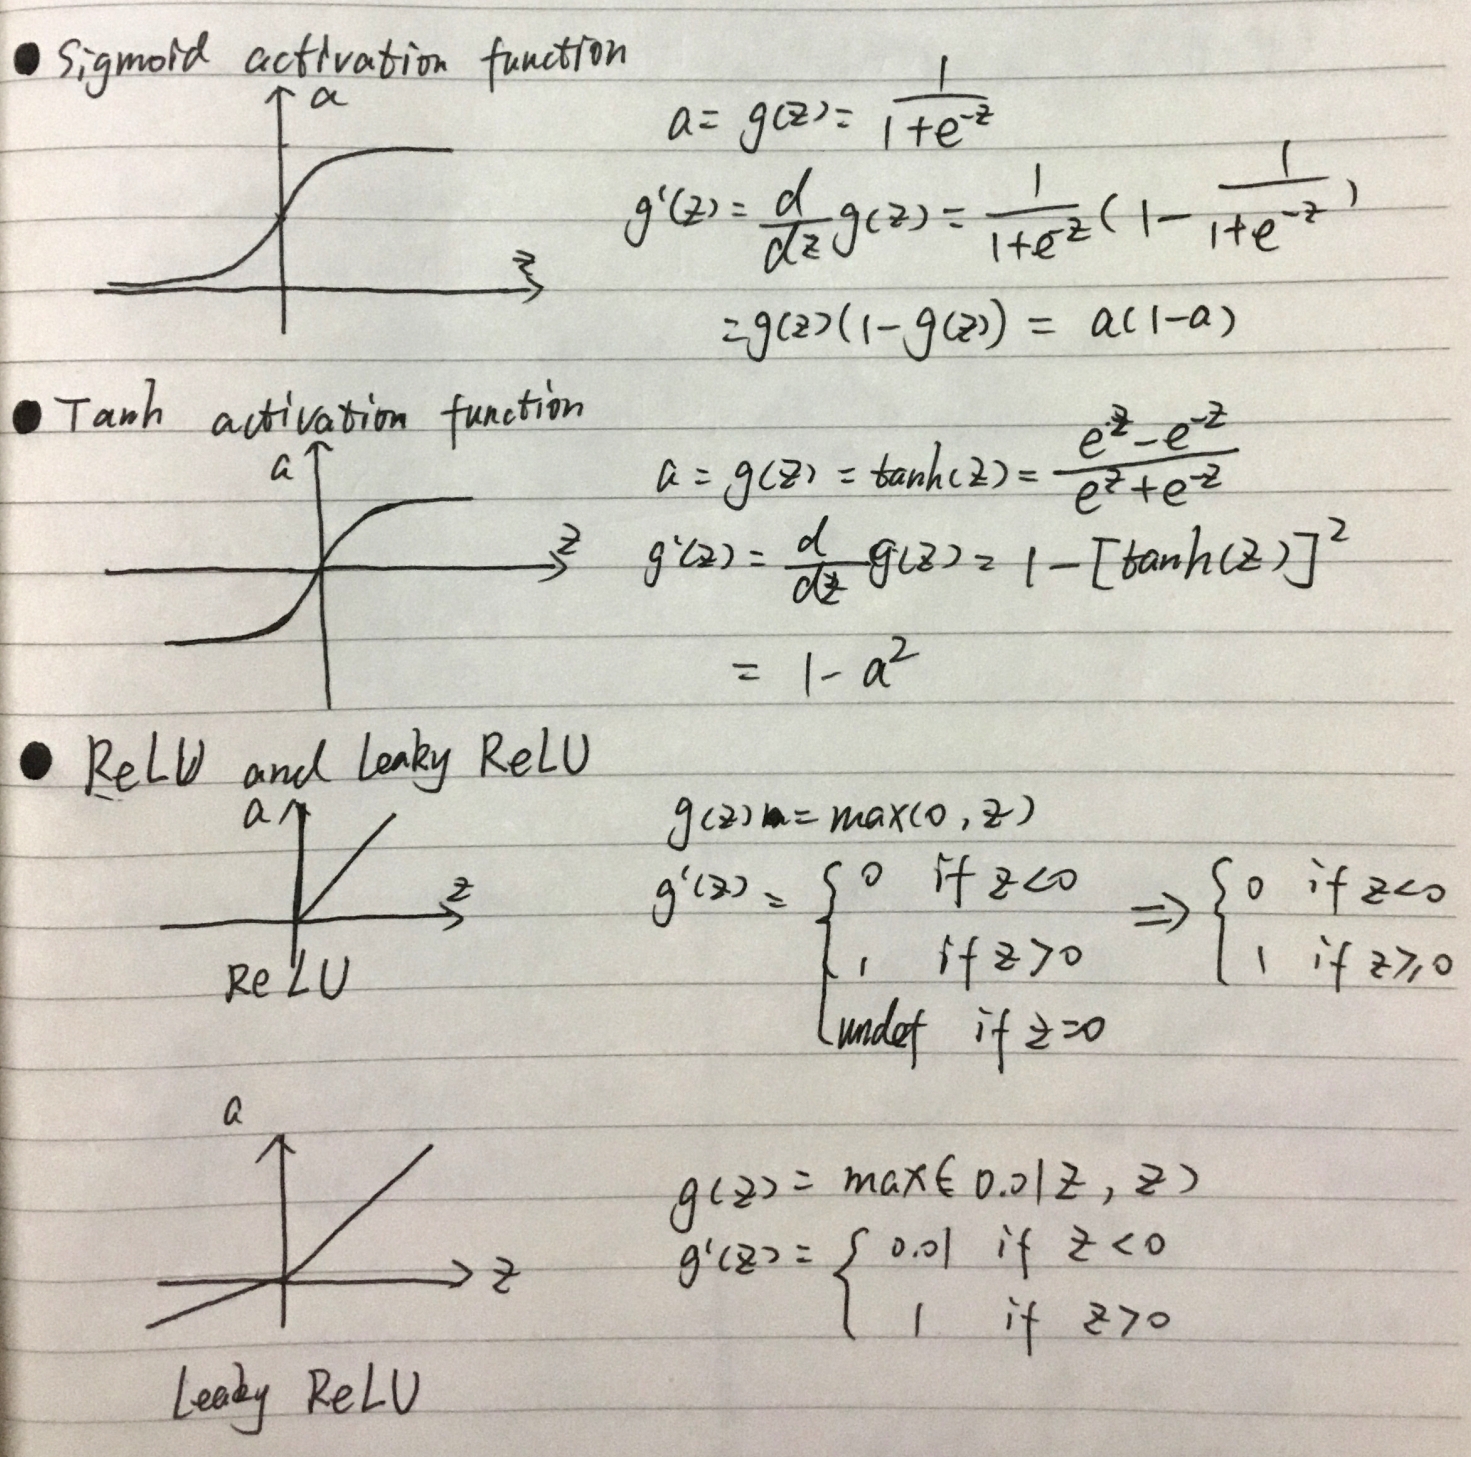 ● Sigmoid activation function
a
z
a = g(z) = 1/(1+e^-z)
g'(z) = d/dz g(z) = 1/(1+e^-z) (1 - 1/(1+e^-z))
= g(z)(1-g(z)) = a(1-a)
● Tanh activation function
a
z
a = g(z) = tanh(z) = (e^z - e^-z)/(e^z + e^-z)
g'(z) = d/dz g(z) = 1 - [tanh(z)]^2
= 1 - a^2
● ReLU and Leaky ReLU
a
z
ReLU
g(z) = max(0, z)
g'(z) = { 0 if z<0 ⇒ { 0 if z<0
1 if z>0 1 if z≥0
undef if z=0
a
z
Leaky ReLU
g(z) = max(0.01z, z)
g'(z) = { 0.01 if z<0
1 if z>0